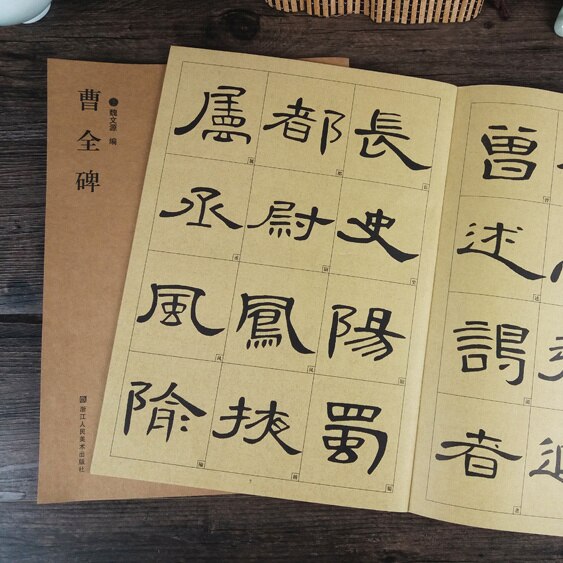 曹全碑
魏文源 编
浙江人民美术出版社
曾述謁者
長史陽蜀
都尉鳳掖
屬丞風隃